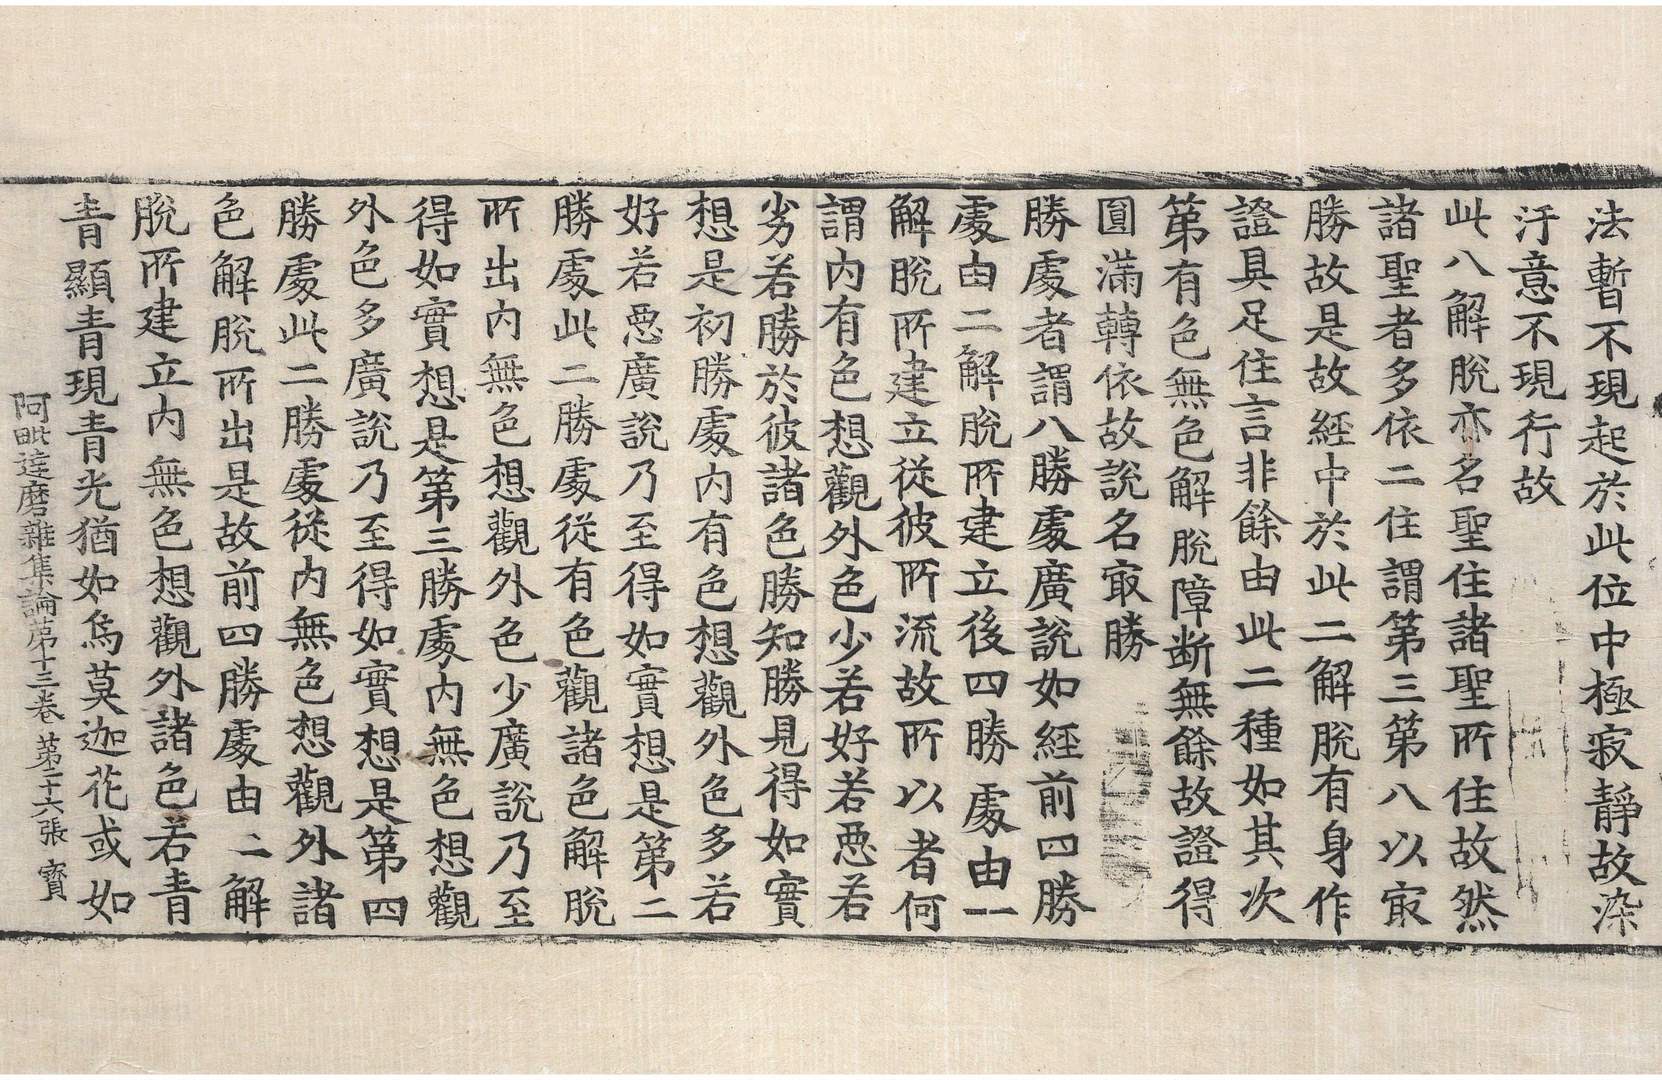 法暫不現起於此位中極寂靜故染
汙意不現行故
此八解脫亦名聖住諸聖所住故然
諸聖者多依二住謂第三第八以㝡
勝故是故經中於此二解脫有身作
證具足住言非餘由此二種如其次
第有色無色解脫障断無餘故證得
圓滿轉依故說名㝡勝
勝處者謂八勝處廣說如經前四勝
處由二解脫所建立後四勝處由一
解脫所建立從彼所流故所以者何
謂内有色想觀外色少若好若惡若
劣若勝於彼諸色勝知勝見得如實
想是初勝處内有色想觀外色多若
好若惡廣說乃至得如實想是第二
勝處此二勝處從有色觀諸色解脫
所出内無色想觀外色少廣說乃至
得如實想是第三勝處内無色想觀
外色多廣說乃至得如實想是第四
勝處此二勝處從内無色想觀外諸
色解脫所出是故前四勝處由二解
脫所建立内無色想觀外諸色若青
青顯青現青光猶如烏莫迦花或如
阿毗達磨雜集論苐十三卷 苐二十六張 寳